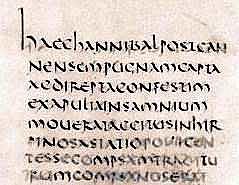 HAECHANNIBALPOSTCAN
NENSEMPUGNAMCAPTA
ACDIREPTACONFESTIM
EXAPULIAINSAMNIUM
MOUERATACCITUSINHIR
PINOSASTATIOPOLLICEN
TESSECOMPSAMTRADITU
RUMCOMPSANUSERAT